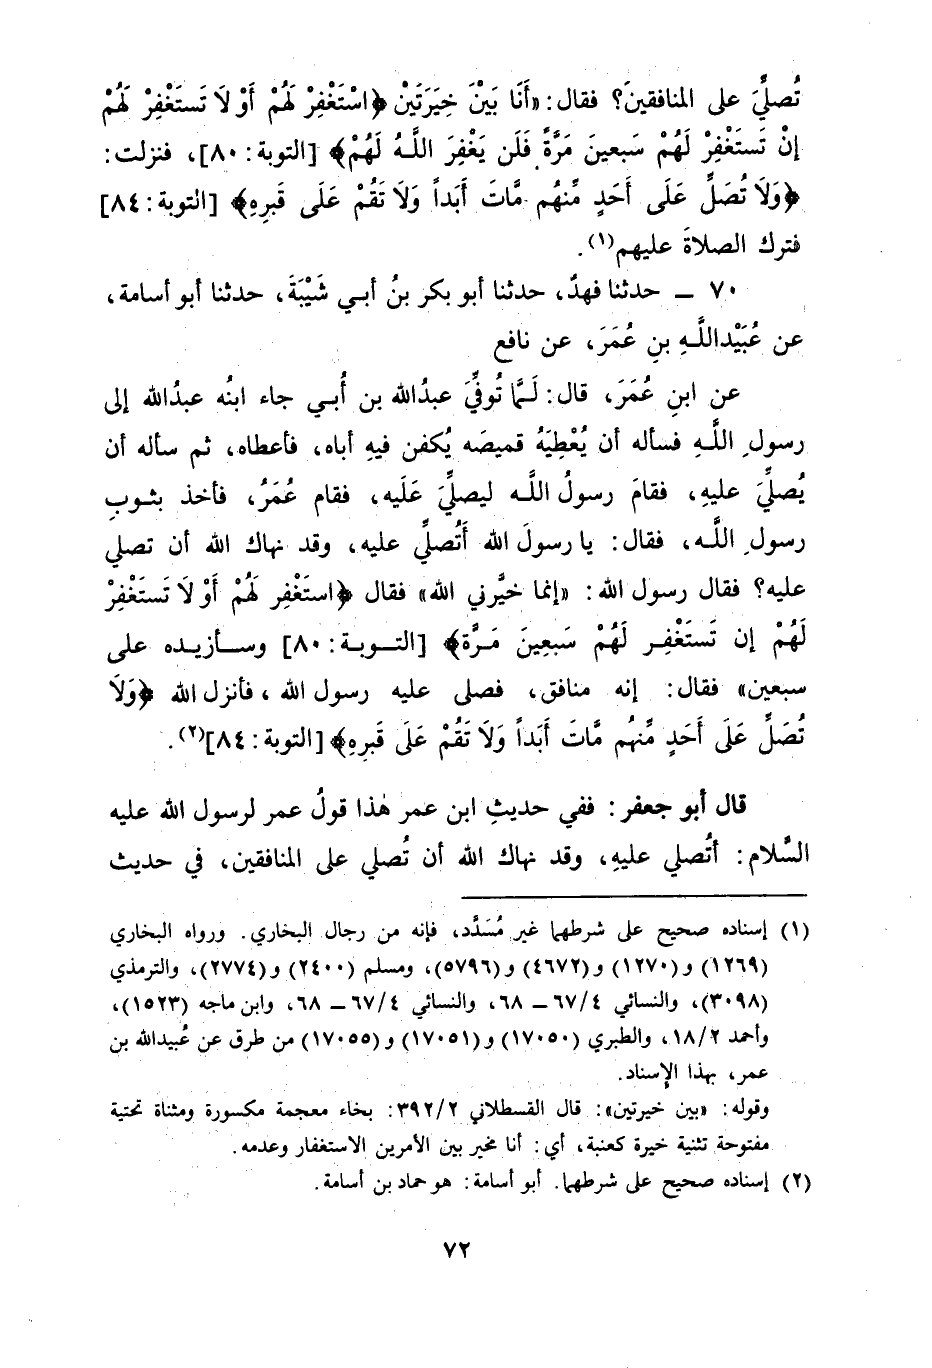 تُصليَّ على المنافقين؟ فقال: «أَنَا بَيْنَ خِيَرَتَيْنِ ﴿اسْتَغْفِرْ لَهُمْ أَوْ لاَ تَستَغْفِرْ لَهُمْ
إنْ تَستَغْفِرْ لَهُمْ سَبعينَ مَرَّةً فَلَن يَغْفِرَ اللَّهُ لَهُمْ﴾ [التوبة: ٨٠]، فنزلت:
﴿وَلَا تُصَلِّ عَلَى أَحَدٍ مِّنهُم مَّاتَ أَبَداً وَلاَ تَقُمْ عَلَى قَبرِهِ﴾ [التوبة: ٨٤]
فترك الصلاةَ عليهم(١).
٧٠ ـ حدثنا فهدٌ، حدثنا أبو بكر بنُ أبي شَيْبَةَ، حدثنا أبو أسامة،
عن عُبَيْداللَّهِ بنِ عُمَرَ، عن نافع
عن ابنِ عُمَرَ، قال: لَمَّا تُوفِّيَ عبدُالله بن أُبي جاء ابنُه عبدُالله إلى
رسولِ اللَّهِ فسأله أن يُعْطِيَهُ قميصَه يُكفن فيهِ أباه، فأعطاه، ثم سأله أن
يُصلِّيَ عليهِ، فقامَ رسولُ اللَّه ليصلِّيَ عَلَيه، فقام عُمَرُ، فأخذ بثوبِ
رسولِ اللَّه، فقال: يا رسولَ الله أَتُصلِّي عليه، وقد نهاك الله أن تصلي
عليه؟ فقال رسول الله: «إنما خيَّرني الله» فقال ﴿استَغْفِر لَهُمْ أَوْ لاَ تَستَغْفِرْ
لَهُمْ إن تَستَغْفِر لَهُمْ سَبعِينَ مَرَّة﴾ [التوبة: ٨٠] وسأزيده على
سبعين» فقال: إنه منافق، فصلى عليه رسول الله ، فأنزل الله ﴿وَلَا
تُصَلِّ عَلَى أَحَدٍ مِّنهُم مَّاتَ أَبَداً وَلاَ تَقُمْ عَلَى قَبرِهِ﴾ [التوبة: ٨٤](٢).
قال أبو جعفر: ففي حديثِ ابن عمر هٰذا قولُ عمر لرسول الله عليه
السَّلام: أتُصلي عليهِ، وقد نهاك الله أن تُصلي على المنافقين، في حديث
(١) إسناده صحيح على شرطهما غير مُسَدَّد، فإنه من رجال البخاري. ورواه البخاري
(١٢٦٩) و(١٢٧٠) و(٤٦٧٢) و(٥٧٩٦)، ومسلم (٢٤٠٠) و(٢٧٧٤)، والترمذي
(٣٠٩٨)، والنسائي ٦٧/٤ ـ ٦٨، والنسائي ٦٧/٤ ـ ٦٨، وابن ماجه (١٥٢٣)،
وأحمد ١٨/٢، والطبري (١٧٠٥٠) و(١٧٠٥١) و(١٧٠٥٥) من طرق عن عُبيدالله بن
عمر، بهذا الإسناد.
وقوله: «بين خيرتين»: قال القسطلاني ٣٩٢/٢: بخاء معجمة مكسورة ومثناة تحتية
مفتوحة تثنية خيرة كعنبة، أي: أنا مخير بين الأمرين الاستغفار وعدمه.
(٢) إسناده صحيح على شرطهما. أبو أسامة: هو حماد بن أسامة.
٧٢